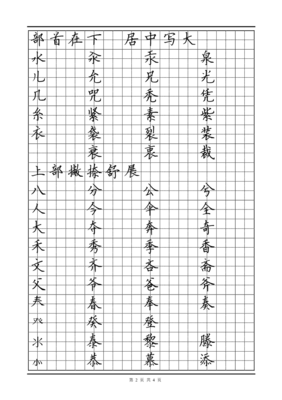 部首在下 居中写大
水 汆 汞 泉
儿 允 兄 光
几 咒 秃 凭
糸 紧 素 紫
衣 袋 裂 装
衰 裹 裁
上部撇捺舒展
八 分 公 兮
人 今 伞 全
大 夺 奔 奇
禾 秀 季 香
文 齐 吝 斋
父 爷 爸 斧
春 奉 奏
癸 登
氺 泰 黎 滕
㣺 恭 慕 添
第 2 页 共 4 页